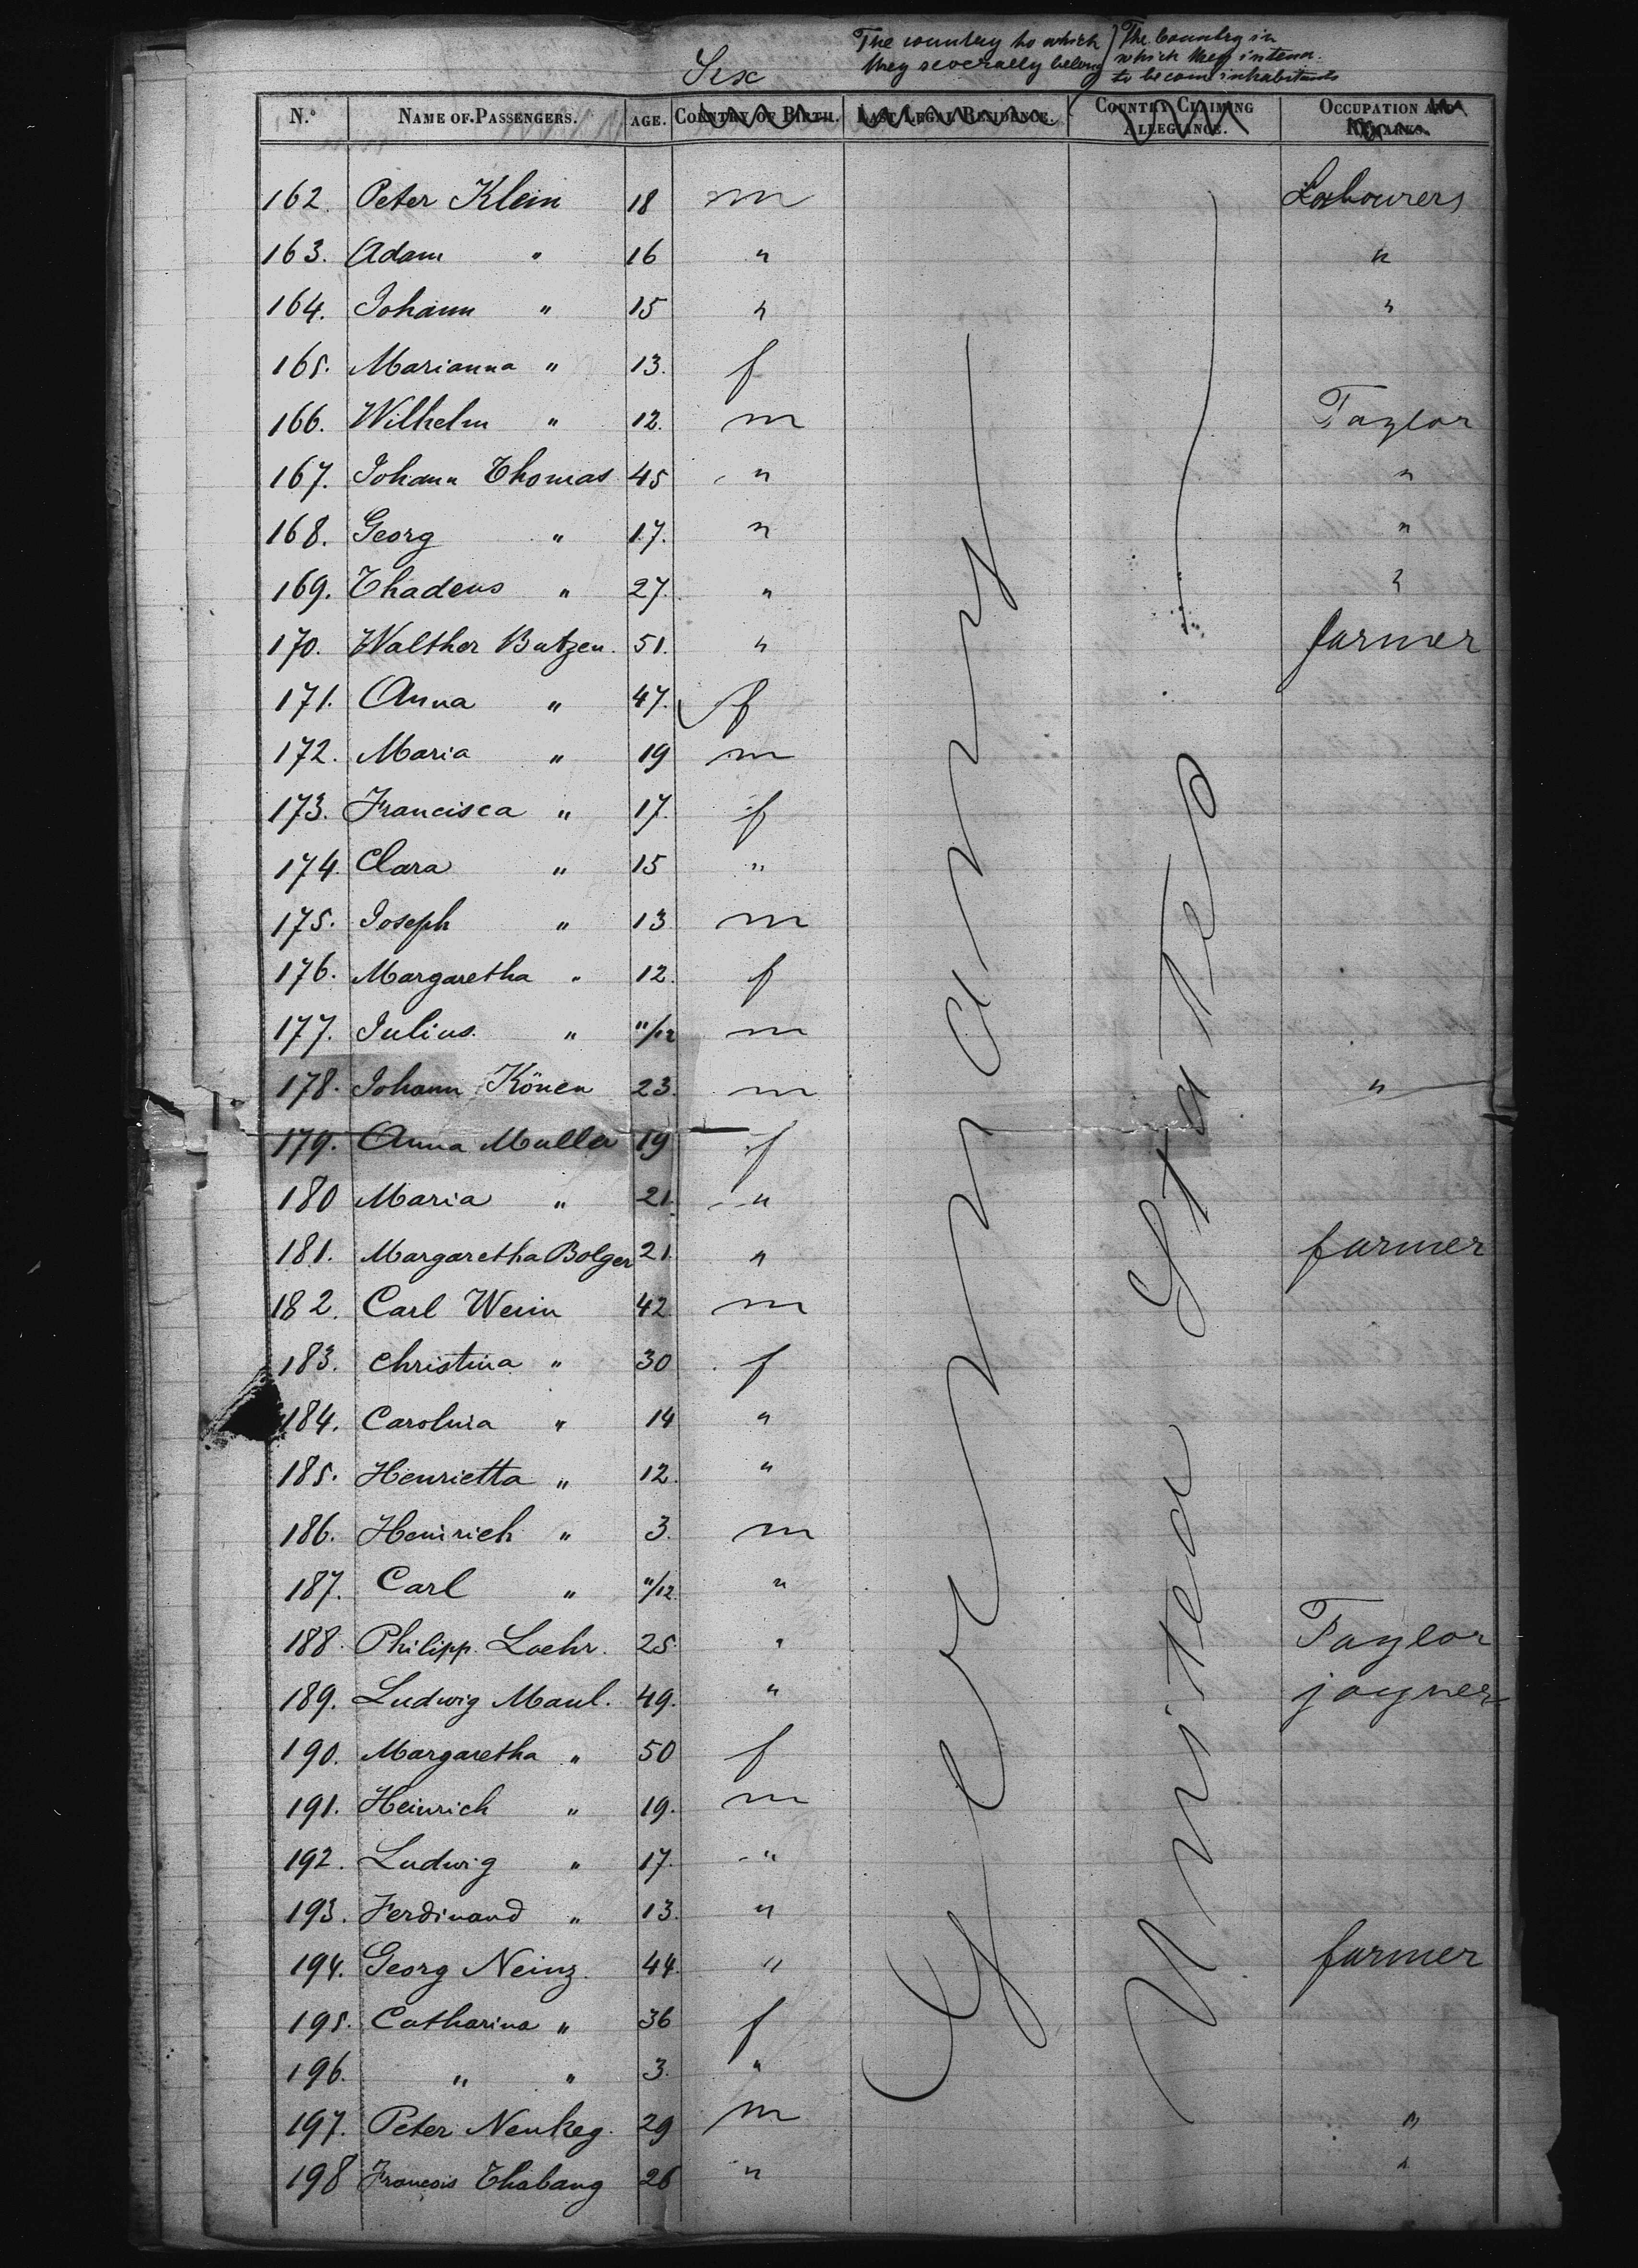 Sex
The country to which they severally belong
The Country in which they intenn. to become inhabitants
N.° NAME OF PASSENGERS. AGE. COUNTRY OF BIRTH. LAST LEGAL RESIDENCE. COUNTRY CLAIMING ALLEGIANCE. OCCUPATION AND REMARKS.
162. Peter Klein 18 m Labourers
163. Adam " 16 " "
164. Johann " 15 " "
165. Marianna " 13. f
166. Wilhelm " 12. m Taylor
167. Johann Thomas 45 " "
168. Georg " 17. " "
169. Thadeus " 27. " "
170. Walther Batzen. 51. " farmer
171. Anna " 47. f
172. Maria " 19 m
173. Francisca " 17. f
174. Clara " 15 "
175. Joseph " 13 m
176. Margaretha " 12. f
177. Julius. " 11/12 m
178. Johann Könen 23. m "
179. Anna Muller 19 f
180 Maria " 21. "
181. Margaretha Bolger 21. " farmer
182. Carl Werin 42. m
183. Christina " 30 f
184. Carolina " 14 "
185. Henrietta " 12. "
186. Heinrich " 3. m
187. Carl " 11/12 "
188. Philipp Loehr. 25. " Taylor
189. Ludwig Maul. 49. " joyner
190. Margaretha " 50 f
191. Heinrich " 19. m
192. Ludwig " 17. "
193. Ferdinand " 13. "
194. Georg Neinz. 44. " farmer
195. Catharina " 36 f
196. " " 3. "
197. Peter Neukeg. 29 m "
198 Francois Thabang 26 " "
Germany
United States